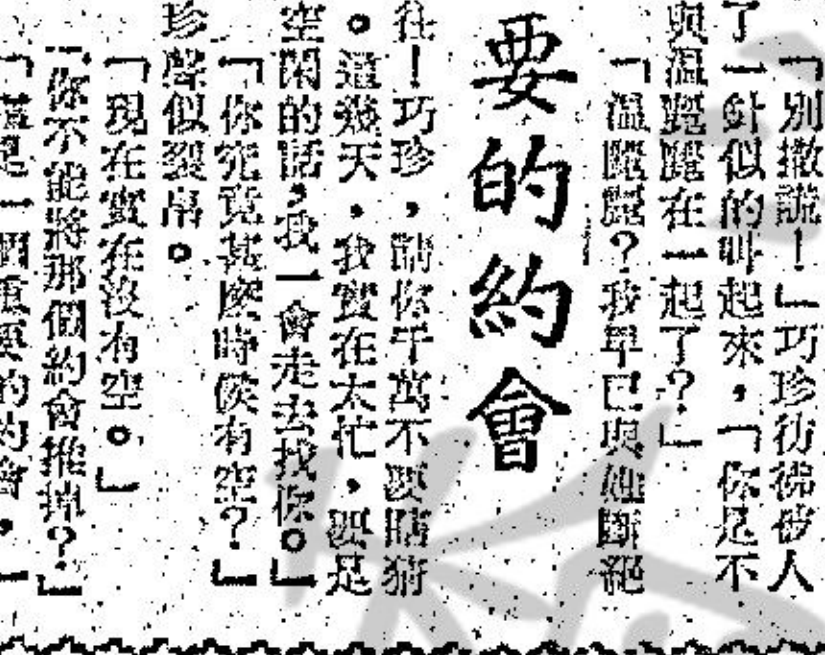 「別撒謊!」巧珍彷彿彼人
了一針似的叫起來,「你是不
與溫麗麗在一起了?」
「溫麗麗?我早已與她斷絕
要的約會
往!巧珍,請你千萬不要瞎猜
。這幾天,我實在太忙,要是
空閑的話,我一會走去找你。」
「你究竟甚麼時候有空?」
珍聲似裂帛。
「現在實在沒有空。」
「你不能將那個約會推掉?」
「這是一個重要的約會,一